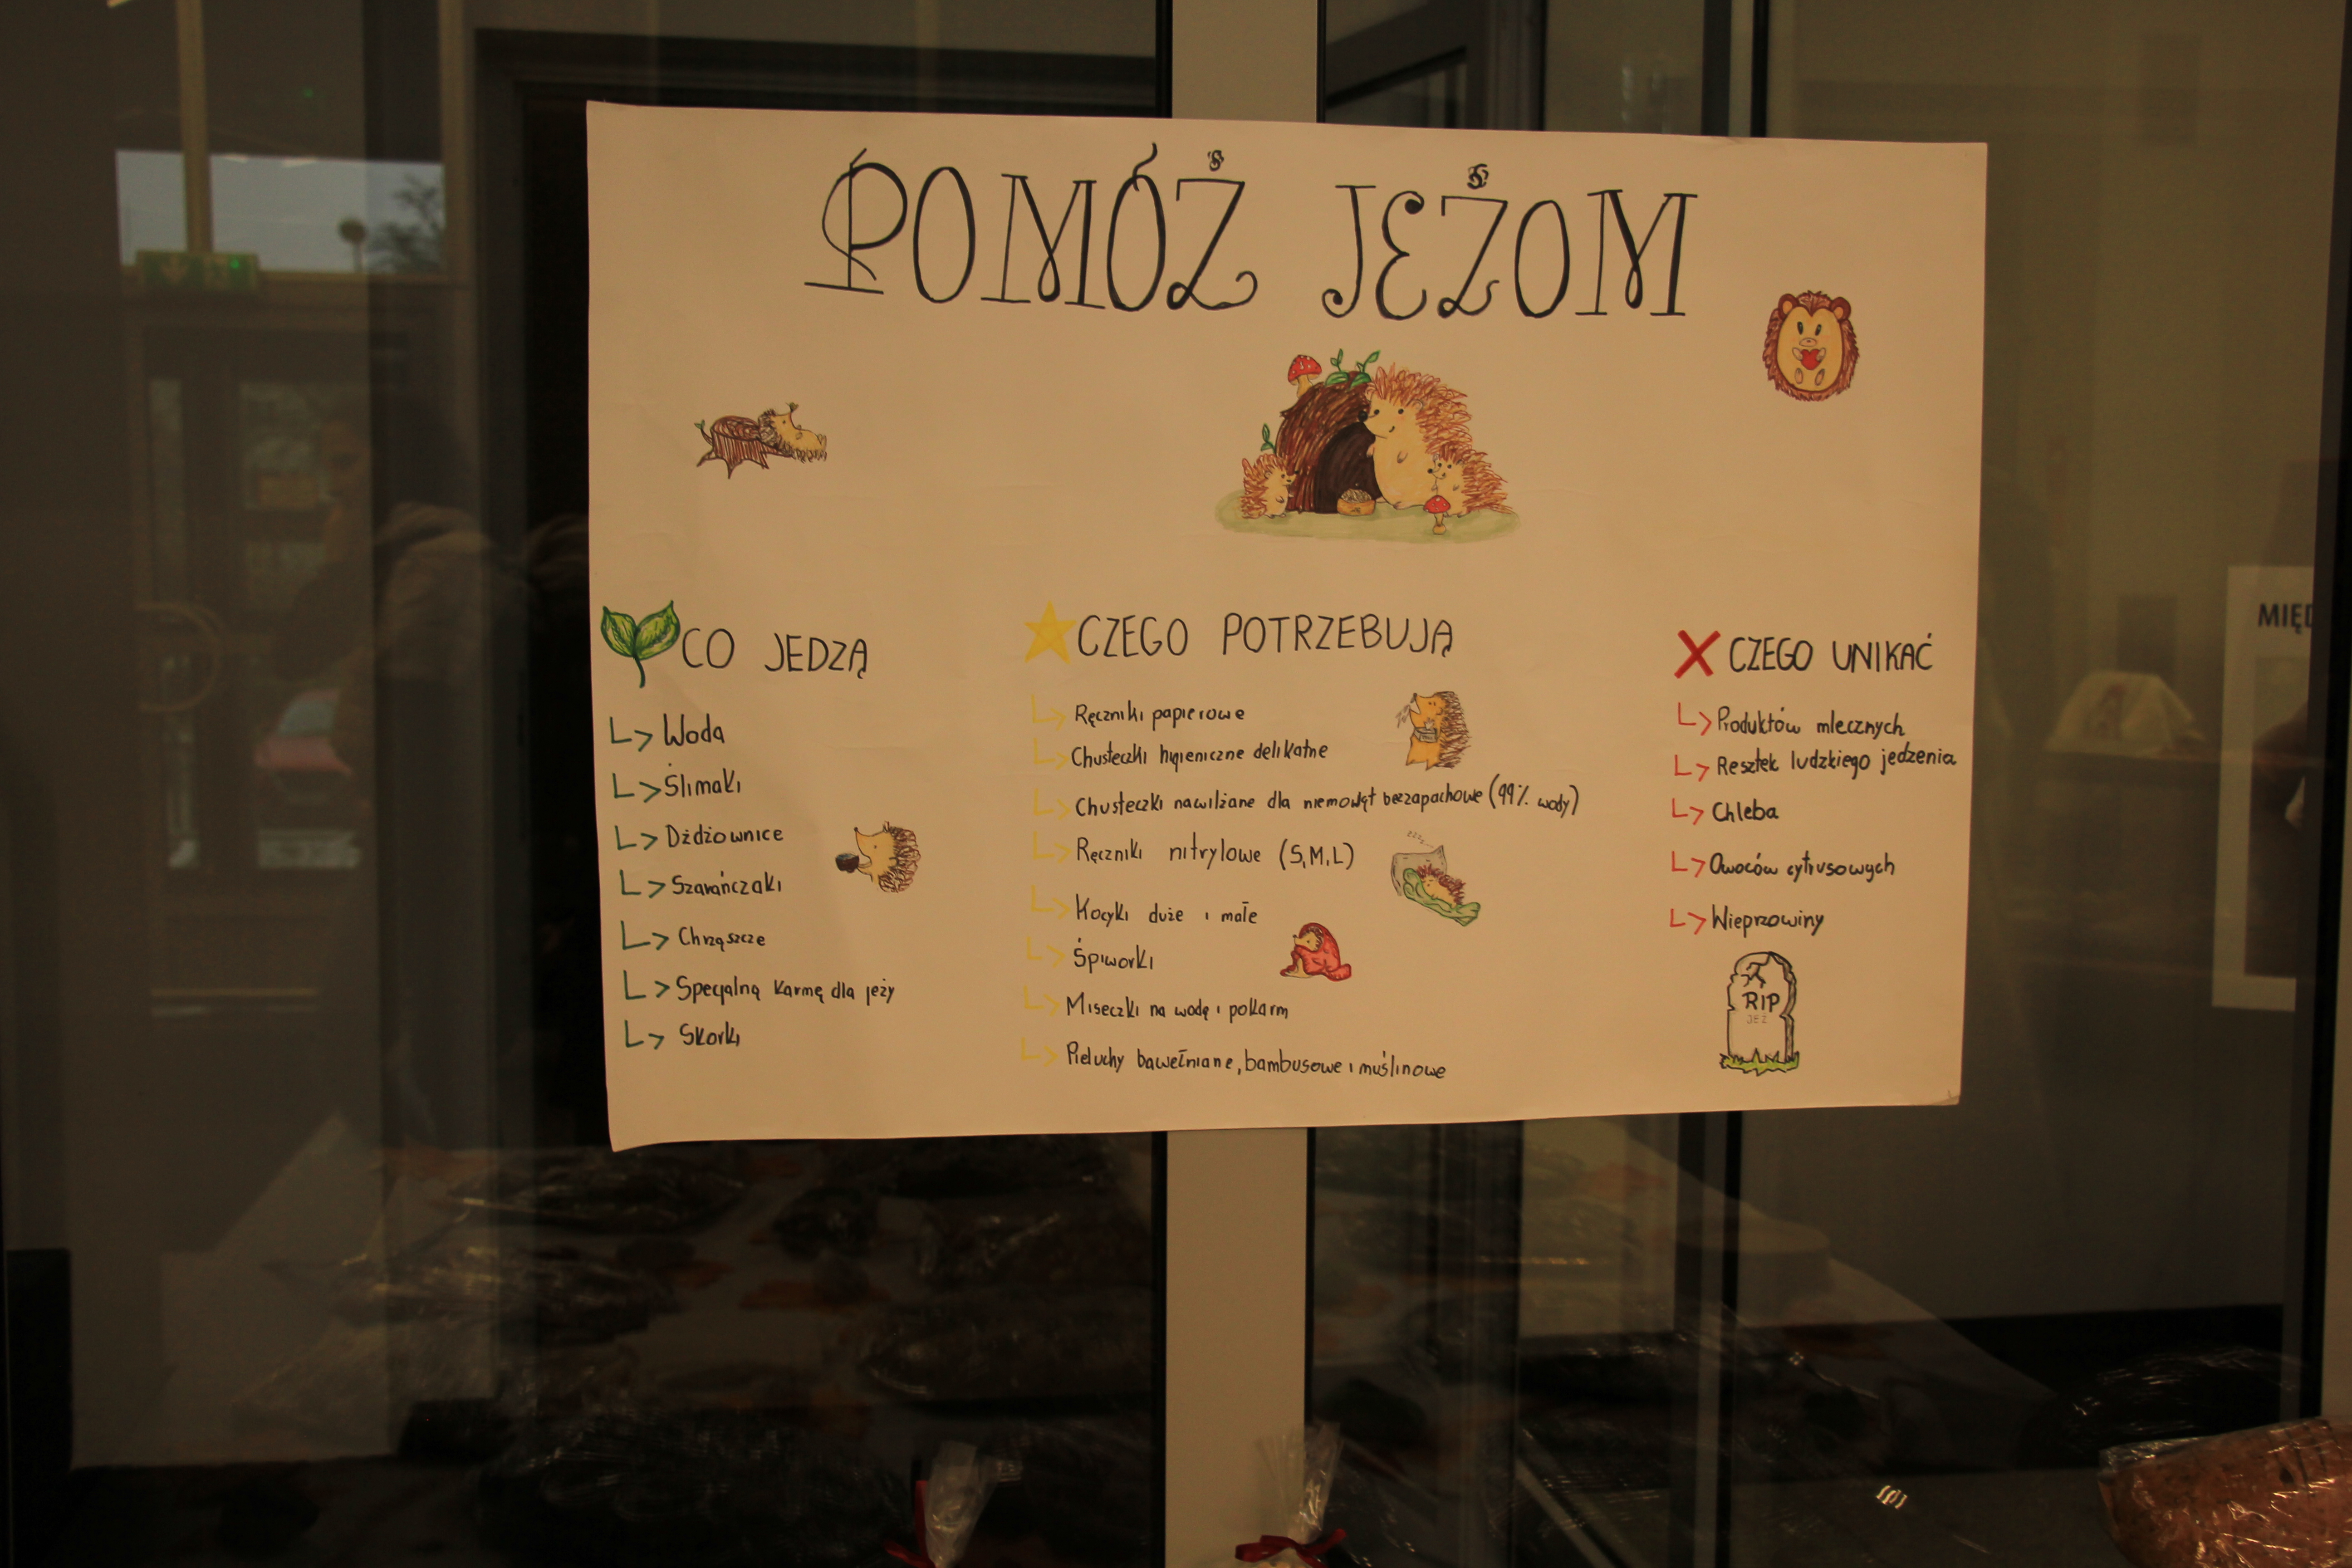 POMÓŻ JEŻOM
CO JEDZĄ
Woda
Ślimaki
Dżdżownice
Szarańczaki
Chrząszcze
Specjalną karmę dla jeży
Skorki
CZEGO POTRZEBUJĄ
Ręczniki papierowe
Chusteczki higieniczne delikatne
Chusteczki nawilżane dla niemowląt bezzapachowe (99% wody)
Ręczniki nitrylowe (S,M,L)
Kocyki duże i małe
Śpiworki
Miseczki na wodę i pokarm
Pieluchy bawełniane, bambusowe i muślinowe
zzz
CZEGO UNIKAĆ
Produktów mlecznych
Resztek ludzkiego jedzenia
Chleba
Owoców cytrusowych
Wieprzowiny
RIP
JEŻ
MIĘD